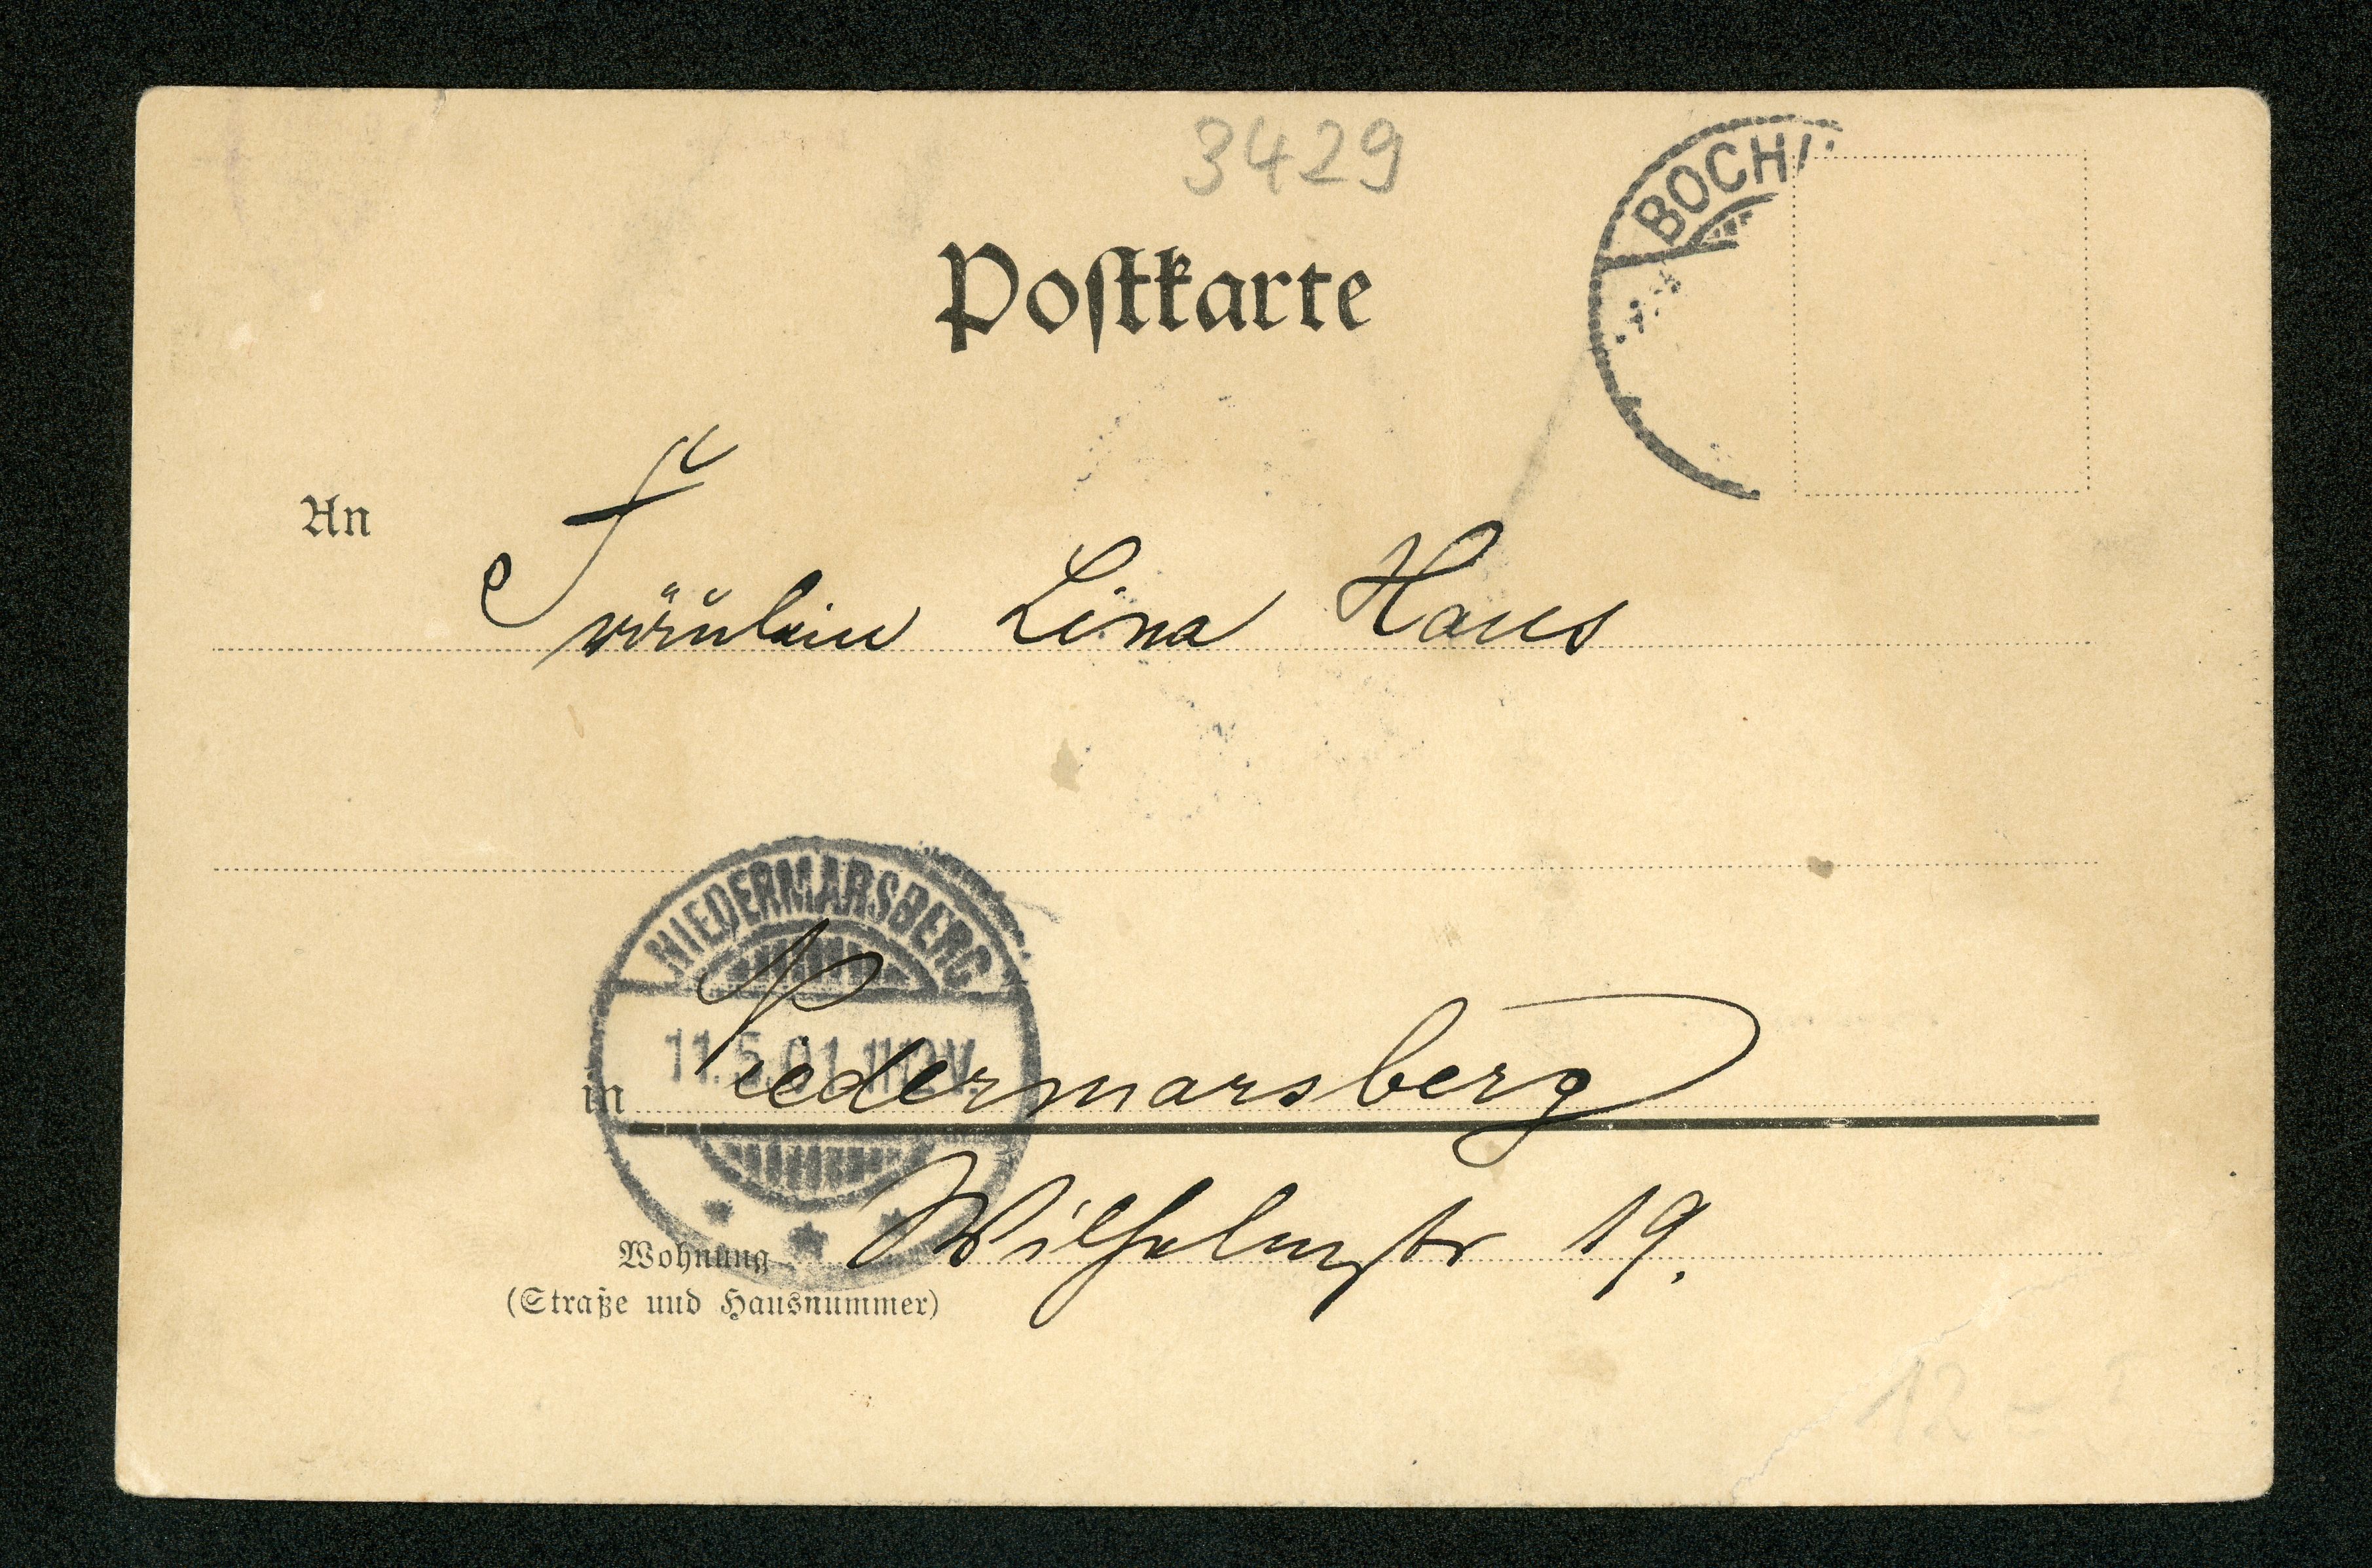 3429
BOCH
Postkarte
An
Fräulein Lina Haus
NIEDERMARSBERG
11.5.01.11-12V.
in Niedermarsberg
Wohnung Wilhelmstr 19.
(Straße und Hausnummer)
12